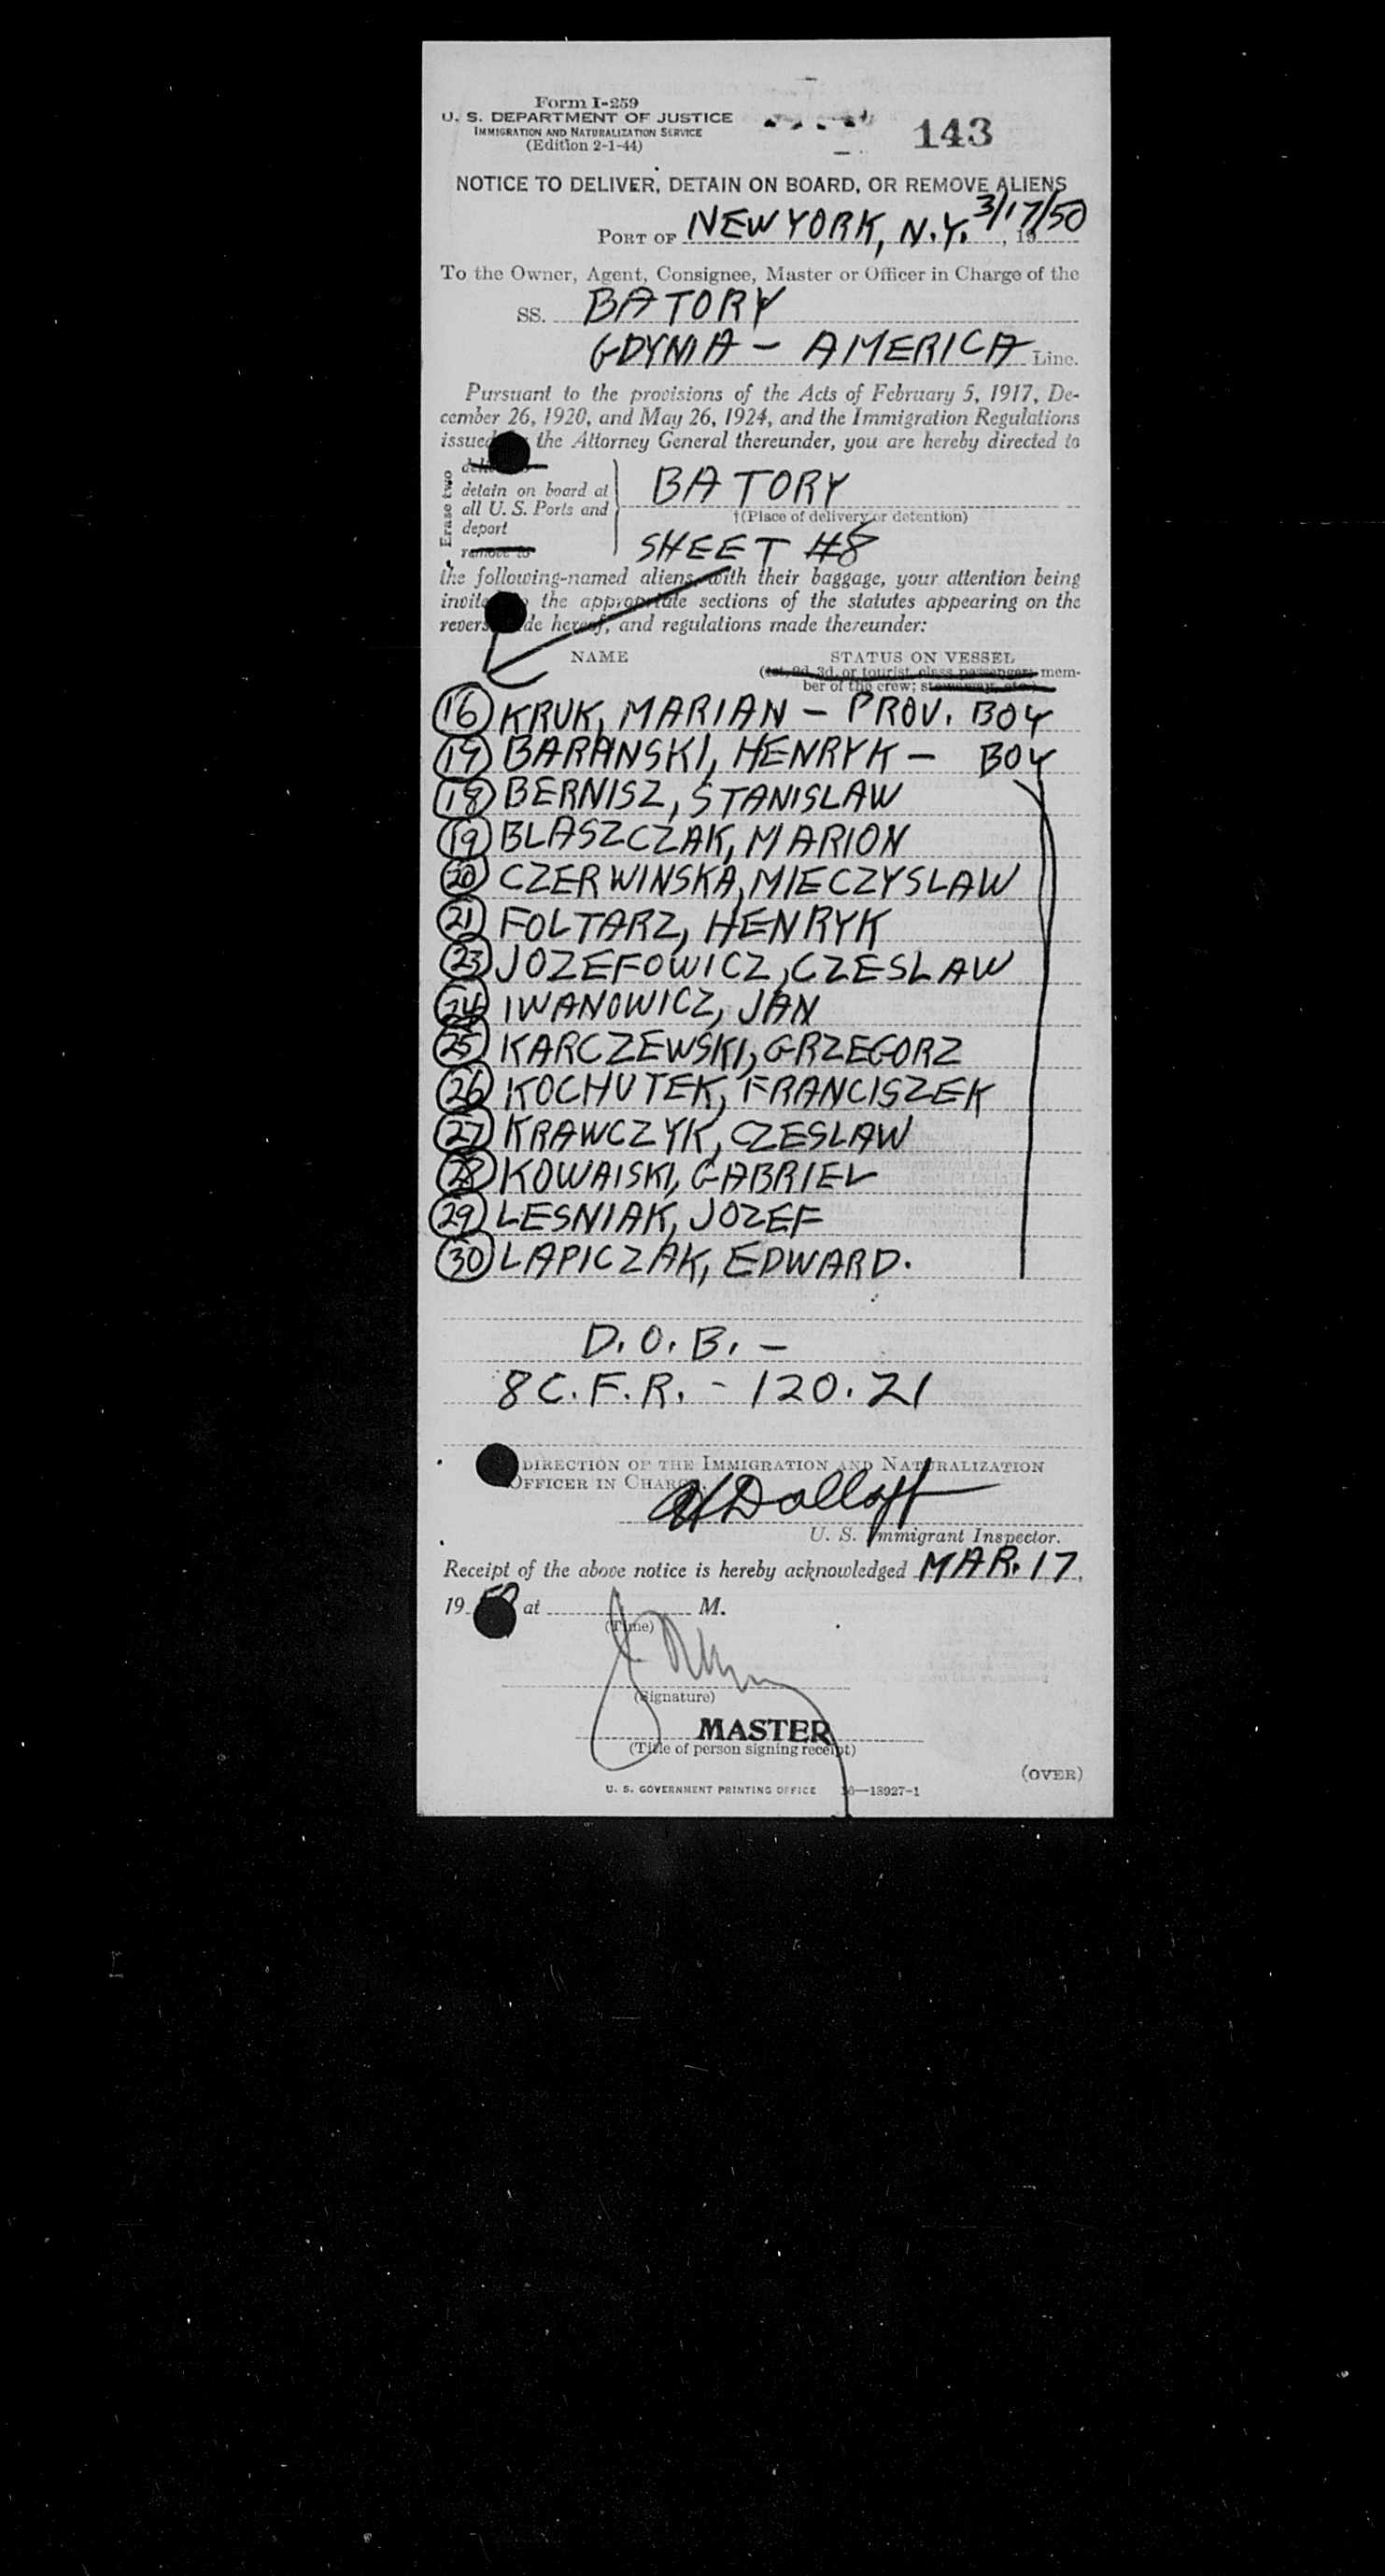 Form I-259
U. S. DEPARTMENT OF JUSTICE
IMMIGRATION AND NATURALIZATION SERVICE
(Edition 2-1-44)
143
NOTICE TO DELIVER, DETAIN ON BOARD, OR REMOVE ALIENS
PORT OF NEW YORK, N.Y. 3/17/50, 19
To the Owner, Agent, Consignee, Master or Officer in Charge of the
SS. BATORY
GDYNIA - AMERICA Line.
Pursuant to the provisions of the Acts of February 5, 1917, De-
cember 26, 1920, and May 26, 1924, and the Immigration Regulations
issued the Attorney General thereunder, you are hereby directed to
Erase two
detain on board at
all U. S. Ports and
deport
remove to
BATORY
†(Place of delivery or detention)
SHEET #8
the following-named aliens, with their baggage, your attention being
the appropriate sections of the statutes appearing on the
hereof, and regulations made thereunder:
NAME STATUS ON VESSEL
(1st, 2d, 3d, or tourist class passenger; mem-
ber of the crew; stowaway, etc.)
16 KRUK, MARIAN - PROV. BOY
19 BARANSKI, HENRYK - BOY
18 BERNISZ, STANISLAW
19 BLASZCZAK, MARION
20 CZERWINSKA, MIECZYSLAW
21 FOLTARZ, HENRYK
23 JOZEFOWICZ, CZESLAW
24 IWANOWICZ, JAN
25 KARCZEWSKI, GRZEGORZ
26 KOCHUTEK, FRANCISZEK
27 KRAWCZYK, CZESLAW
28 KOWAISKI, GABRIEL
29 LESNIAK, JOZEF
30 LAPICZAK, EDWARD.
D.O.B. -
8 C.F.R. - 120.21
DIRECTION OF THE IMMIGRATION AND NATURALIZATION
OFFICER IN CHARGE.
U. S. Immigrant Inspector.
Receipt of the above notice is hereby acknowledged MAR. 17,
19 50 at M.
(Time)
(Signature)
MASTER
(Title of person signing receipt)
(OVER)
U. S. GOVERNMENT PRINTING OFFICE 16—18927-1